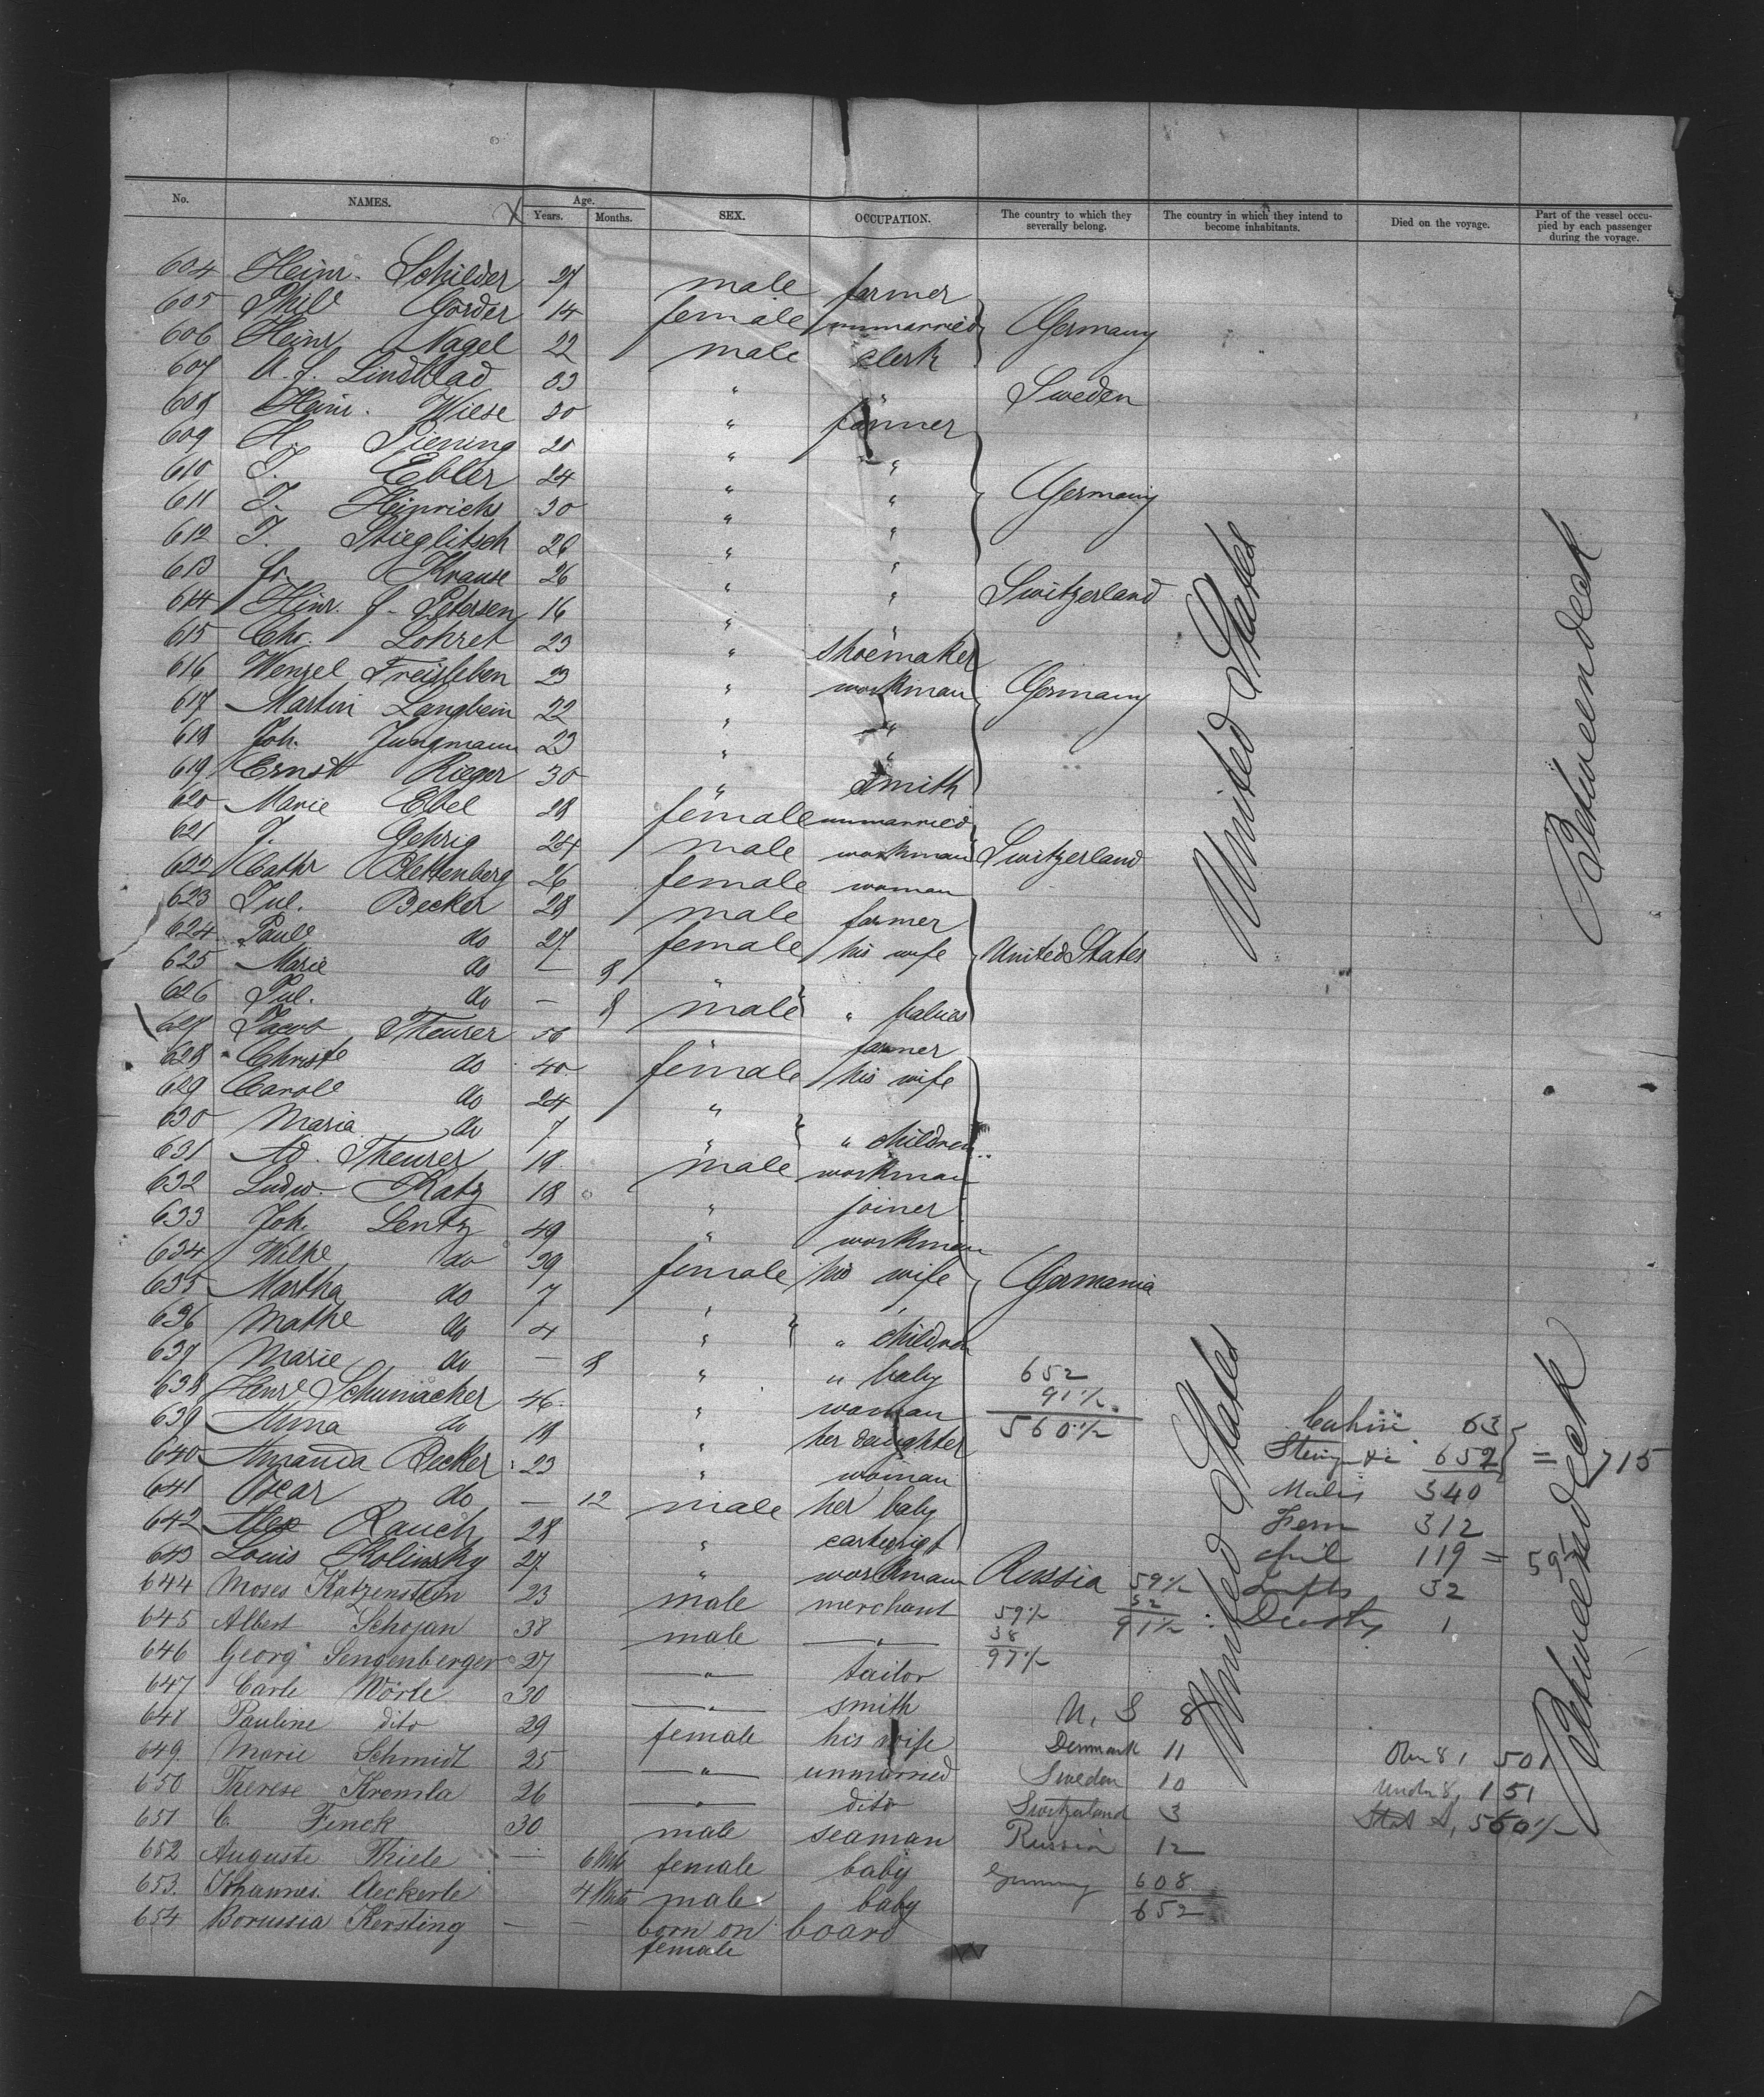 No. NAMES. Age. Years. Months. SEX. OCCUPATION. The country to which they severally belong. The country in which they intend to become inhabitants. Died on the voyage. Part of the vessel occupied by each passenger during the voyage.
X
604 Heinr. Schilder 27 male farmer
605 Phile Gorder 14 female unmarried Germany
606 Heinr Nagel 22 male clerk
607 A. f. Lindblad 33 " " Sweden
608 Heinr. Wiese 30 " farmer
609 H. Piening 20 " "
610 T. Ebler 24 " " Germany
611 T. Heinrichs 30 " "
612 T. Stieglitsch 28 " "
613 fr. Krause 26 " " Switzerland
614 Heinr. f. Petersen 16 " "
615 Chr. Lohret 23 " shoemaker
616 Wenzel Freisleben 23 " workman Germany
617 Martin Langbein 22 " "
618 Joh. Jungmann 23 " "
619 Ernst Rieger 30 " smith
620 Marie Ebel 28 female unmarried
621 J. Gehrig 24 male workman Switzerland
622 Cathr Blettenberg 26 female woman
623 Jul. Becker 28 male farmer
624 Paule do 27 female his wife United States
625 Marie do — 8 "
626 Jul. do — 8 male " babies
627 Jacob Theurer 56 " farmer
628 Christe do 40 female his wife
629 Carole do 24 "
630 Maria do 7 " " children
631 Ad. Theurer 18 male workman
632 Ludw. Ratz 18 " joiner
633 Joh. Lentz 49 " workman
634 Wilhe do 39 female his wife Germania
635 Martha do 7 "
636 Mathe do 4 " " children
637 Marie do — 8 " " baby
638 Henre Schumacher 46 " woman
639 Anna do 18 " her daughter
640 Amanda Becker 23 " woman
641 Oscar do — 12 male her baby
642 Alex Rauch 28 "
643 Louis Kolinsky 27 " workman Russia
644 Moses Katzenstein 23 male merchant
645 Albert Schojan 38 male "
646 Georg Sengenberger 27 " tailor
647 Carle Wörle 30 " smith
648 Pauline dito 29 female his wife
649. Marie Schmidt 25 " unmarried
650 Therese Kremla 26 " dito
651 C. Finck 30 male seaman
652 Auguste Thiele — 6 Mts female baby
653. Johannes Aeckerle 4 Mts male baby
654 Borussia Kersting — — born on board
female
United States
Betweendeck
United States
Betweendeck
652
91½
560½
59½
32
91½
59½
38
97½
U. S 8
Denmark 11
Sweden 10
Switzerland 3
Russia 12
Germany 608
652
Cabin 63
652 = 715
Males 340
Fem 312
Chil 119 = 59½
Infts 32
Deaths 1
Over 8, 501
Under 8, 151
560½